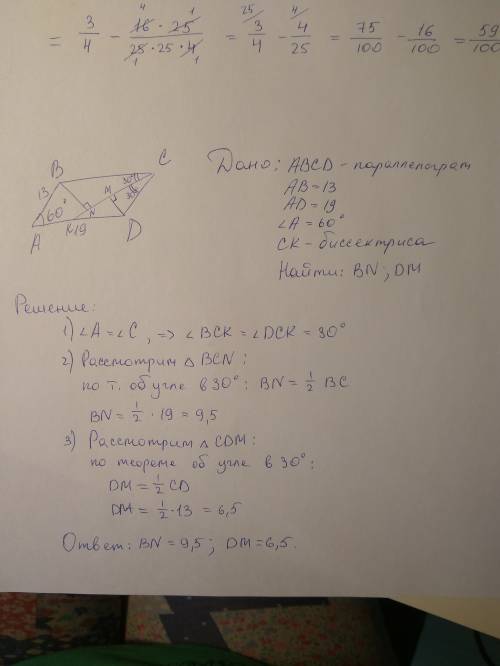 = 3/4 - 16 · 25 / 25 · 25 · 4 = 3/4 - 4/25 = 75/100 - 16/100 = 59/100
B
C
13
60°
M
N
A
K
19
D
Дано: ABCD - параллелограм
AB = 13
AD = 19
∠A = 60°
CK - биссектриса
Найти: BN; DM
Решение:
1) ∠A = ∠C, => ∠BCK = ∠DCK = 30°
2) Рассмотрим △ BCN:
по т. об угле в 30°: BN = 1/2 BC
BN = 1/2 · 19 = 9,5
3) Рассмотрим △ CDM:
по теореме об угле в 30°:
DM = 1/2 CD
DM = 1/2 · 13 = 6,5
Ответ: BN = 9,5; DM = 6,5.